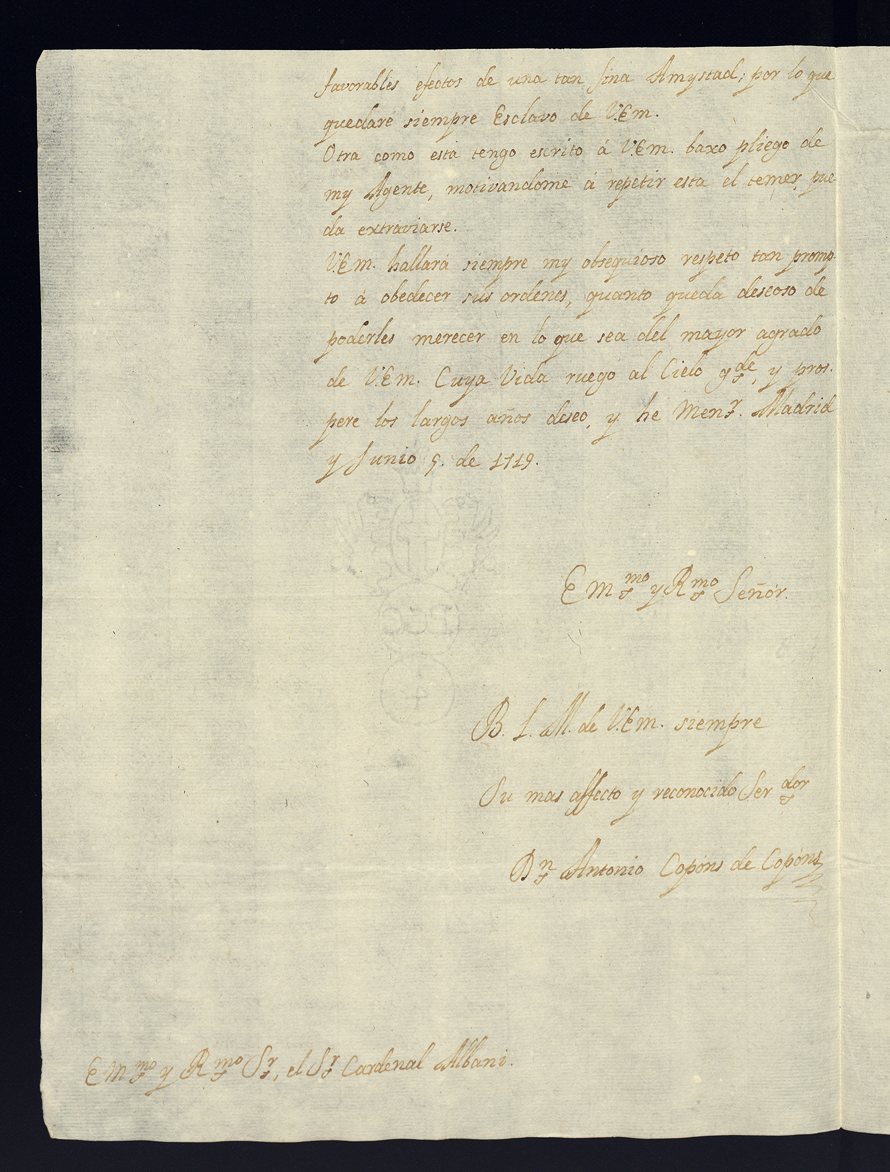 favorables efectos de una tan fina Amystad; por lo que
quedaré siempre Esclavo de V.Em.
Otra como esta tengo escrito á V.Em. baxo pliego de
my Agente, motivandome á repetir esta el temer pue
da extraviarse.
V.Em. hallará siempre my obsequioso respeto tan promp
to á obedecer sus ordenes, quanto queda deseoso de
poderles merecer en lo que sea del mayor agrado
de V.Em. Cuya Vida ruego al Cielo gde, y pros.
pere los largos años deseo, y he Menr. Madrid
y Junio 5. de 1719.
Emmo y Rmo Señor.
B. L. M. de V.Em. siempre
Su mas affecto y reconocido Serdor
Dn Antonio Copóns de Copóns
Emmo y Rmo Sr, el Sr Cardenal Albani.